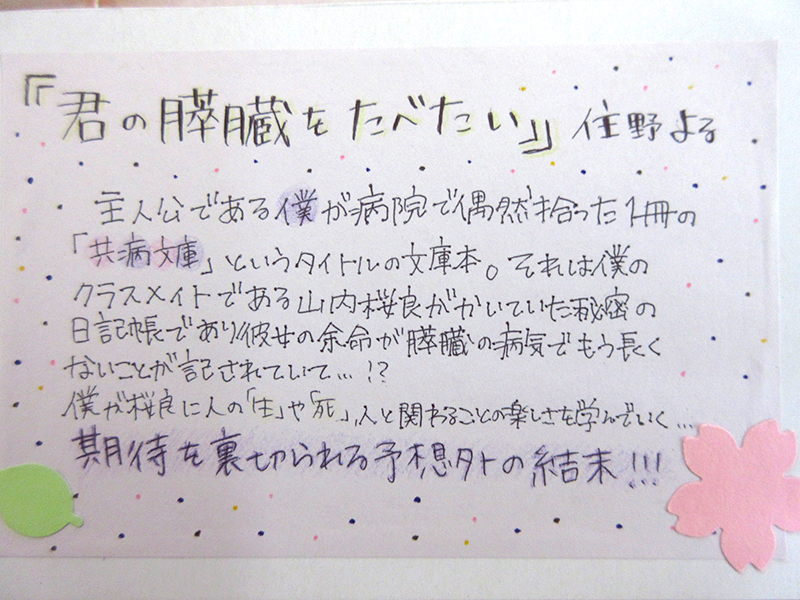 『君の膵臓をたべたい』 住野よる
主人公である僕が病院で偶然拾った1冊の
「共病文庫」というタイトルの文庫本。それは僕の
クラスメイトである山内桜良がかいていた秘密の
日記帳であり彼女の余命が膵臓の病気でもう長く
ないことが記されていて…!?
僕が桜良に人の「生」や「死」,人と関わることの楽しさを学んでいく…
期待を裏切られる予想外の結末!!!